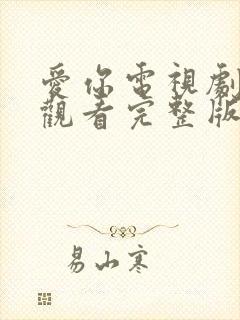 愛你電視劇
觀看完整版
易山寒